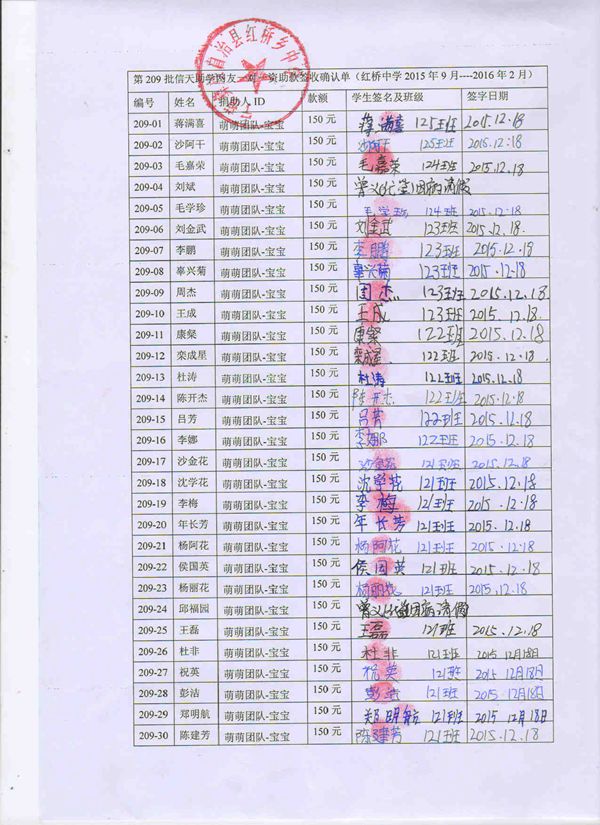 自治县红桥乡中
第 209 批信天助学网友一对一资助款签收确认单（红桥中学 2015 年 9 月----2016 年 2 月）
编号 姓名 捐助人 ID 款额 学生签名及班级 签字日期
209-01 蒋满喜 萌萌团队-宝宝 150 元 蒋满喜 125班 2015.12.18
209-02 沙阿干 萌萌团队-宝宝 150 元 沙阿干 125班 2015.12.18
209-03 毛嘉荣 萌萌团队-宝宝 150 元 毛嘉荣 124班 2015.12.18
209-04 刘斌 萌萌团队-宝宝 150 元 曾义代签因病请假
209-05 毛学珍 萌萌团队-宝宝 150 元 毛学珍 124班 2015.12.18
209-06 刘金武 萌萌团队-宝宝 150 元 刘金武 123班 2015.12.18
209-07 李鹏 萌萌团队-宝宝 150 元 李鹏 123班 2015.12.18
209-08 辜兴菊 萌萌团队-宝宝 150 元 辜兴菊 123班 2015.12.18
209-09 周杰 萌萌团队-宝宝 150 元 周杰 123班 2015.12.18
209-10 王成 萌萌团队-宝宝 150 元 王成 123班 2015.12.18
209-11 康粲 萌萌团队-宝宝 150 元 康粲 122班 2015.12.18
209-12 栾成星 萌萌团队-宝宝 150 元 栾成星 122班 2015.12.18
209-13 杜涛 萌萌团队-宝宝 150 元 杜涛 122班 2015.12.18
209-14 陈开杰 萌萌团队-宝宝 150 元 陈开杰 122班 2015.12.18
209-15 吕芳 萌萌团队-宝宝 150 元 吕芳 122班 2015.12.18
209-16 李娜 萌萌团队-宝宝 150 元 李娜 122班 2015.12.18
209-17 沙金花 萌萌团队-宝宝 150 元 沙金花 121班 2015.12.18
209-18 沈学花 萌萌团队-宝宝 150 元 沈学花 121班 2015.12.18
209-19 李梅 萌萌团队-宝宝 150 元 李梅 121班 2015.12.18
209-20 年长芳 萌萌团队-宝宝 150 元 年长芳 121班 2015.12.18
209-21 杨阿花 萌萌团队-宝宝 150 元 杨阿花 121班 2015.12.18
209-22 侯国英 萌萌团队-宝宝 150 元 侯国英 121班 2015.12.18
209-23 杨丽花 萌萌团队-宝宝 150 元 杨丽花 121班 2015.12.18
209-24 邱福园 萌萌团队-宝宝 150 元 曾义代签因病请假
209-25 王磊 萌萌团队-宝宝 150 元 王磊 121班 2015.12.18
209-26 杜非 萌萌团队-宝宝 150 元 杜非 121班 2015 12月18日
209-27 祝英 萌萌团队-宝宝 150 元 祝英 121班 2015 12月18日
209-28 彭洁 萌萌团队-宝宝 150 元 彭洁 121班 2015.12月18日
209-29 郑明航 萌萌团队-宝宝 150 元 郑明航 121班 2015 12月18日
209-30 陈建芳 萌萌团队-宝宝 150 元 陈建芳 121班 2015.12.18